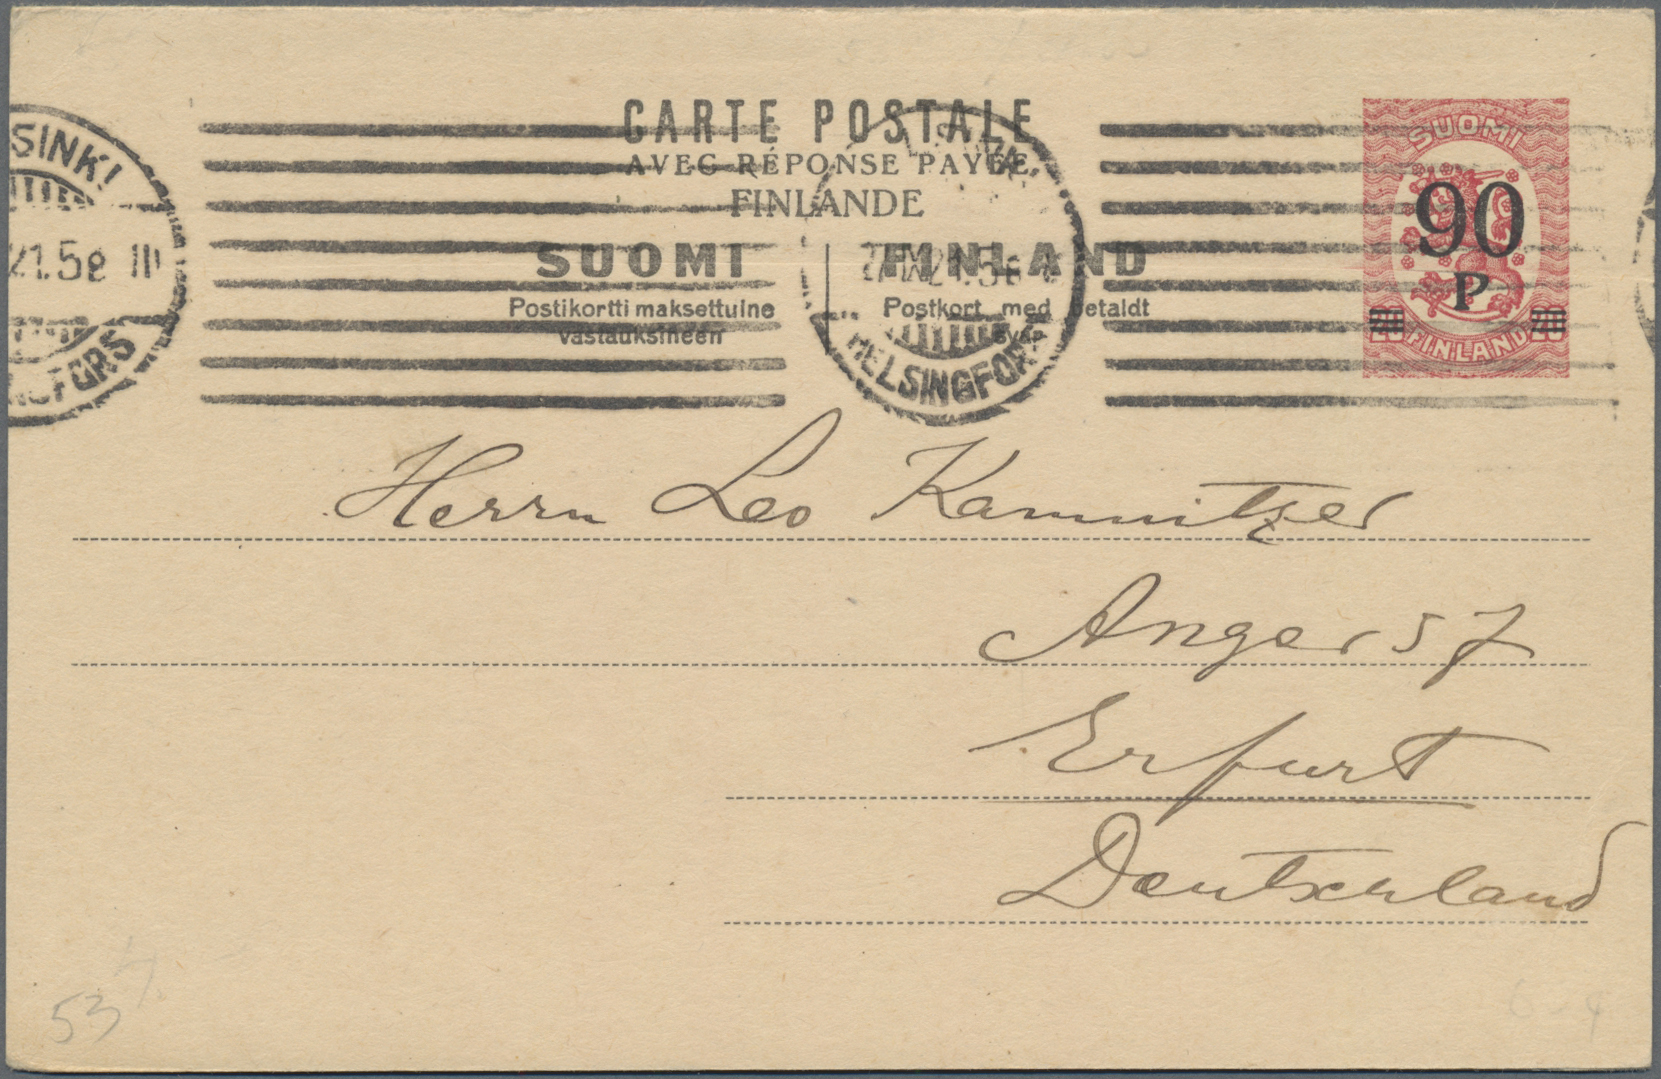 CARTE POSTALE
AVEC RÉPONSE PAYÉE
FINLANDE
SUOMI FINLAND
Postikortti maksettuine Postkort med betaldt
vastauksineen
SUOMI
90
P
20 20
FINLAND
SINKI
21.5e III
HELSINGFORS
Herrn Leo Kamnitzer
Anger 57
Erfurt
Deutschland
53